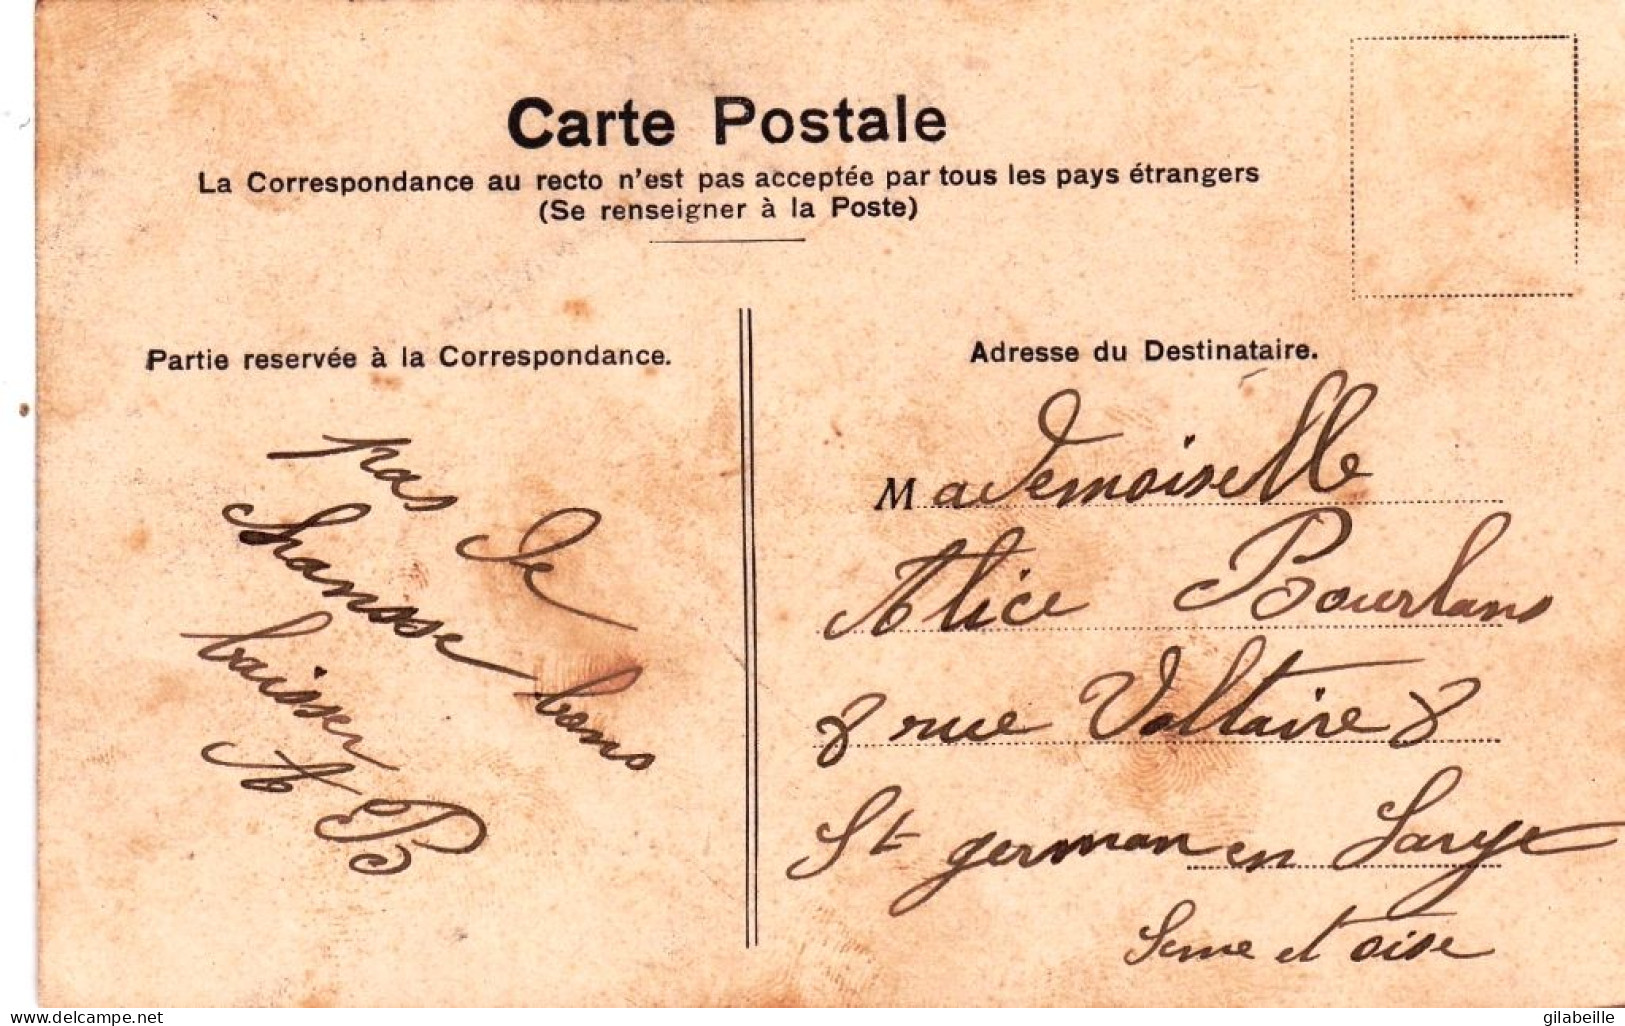 Carte Postale
La Correspondance au recto n'est pas acceptée par tous les pays étrangers
(Se renseigner à la Poste)
Partie reservée à la Correspondance.
pas de
Shanse bons
baisser
AB
Adresse du Destinataire.
Mademoiselle
Alice Bourlans
8 rue Voltaire 8
St german en Larye
Seine et oise
www.delcampe.net
gilabeille